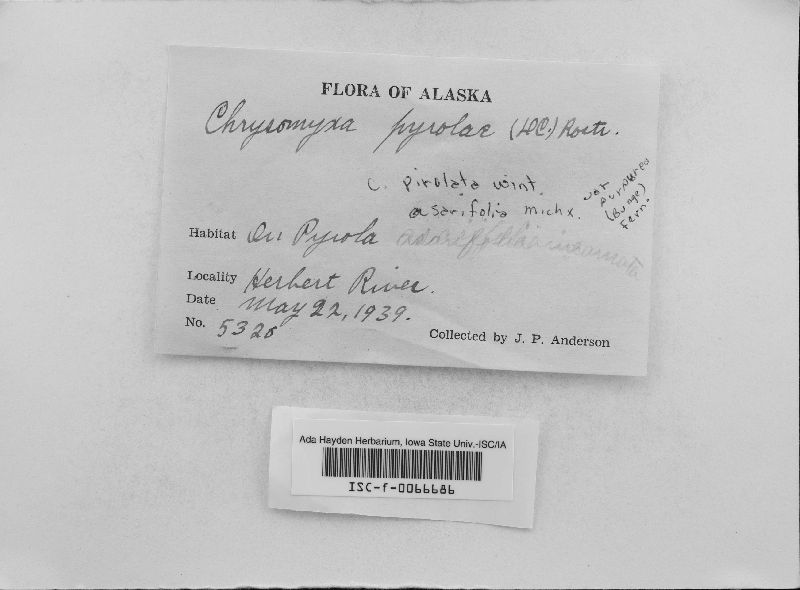 FLORA OF ALASKA
Chrysomyxa pyrolae (DC.) Rostr.
C. pirolata wint.
asarifolia michx. var purpurea (Bunge) Fern.
Habitat On Pyrola asarifolia incarnata
Locality Herbert River.
Date May 22, 1939.
No. 5328
Collected by J. P. Anderson
Ada Hayden Herbarium, Iowa State Univ.-ISC/IA
ISC-f-0066686